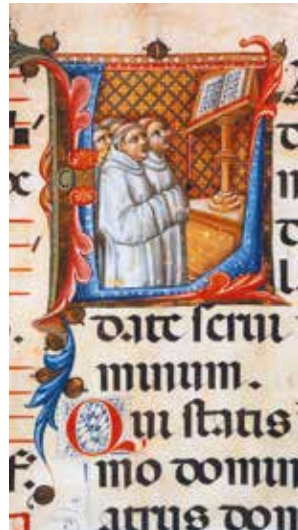 date serui
minum.
Qui statis
mo domin
atrus dom